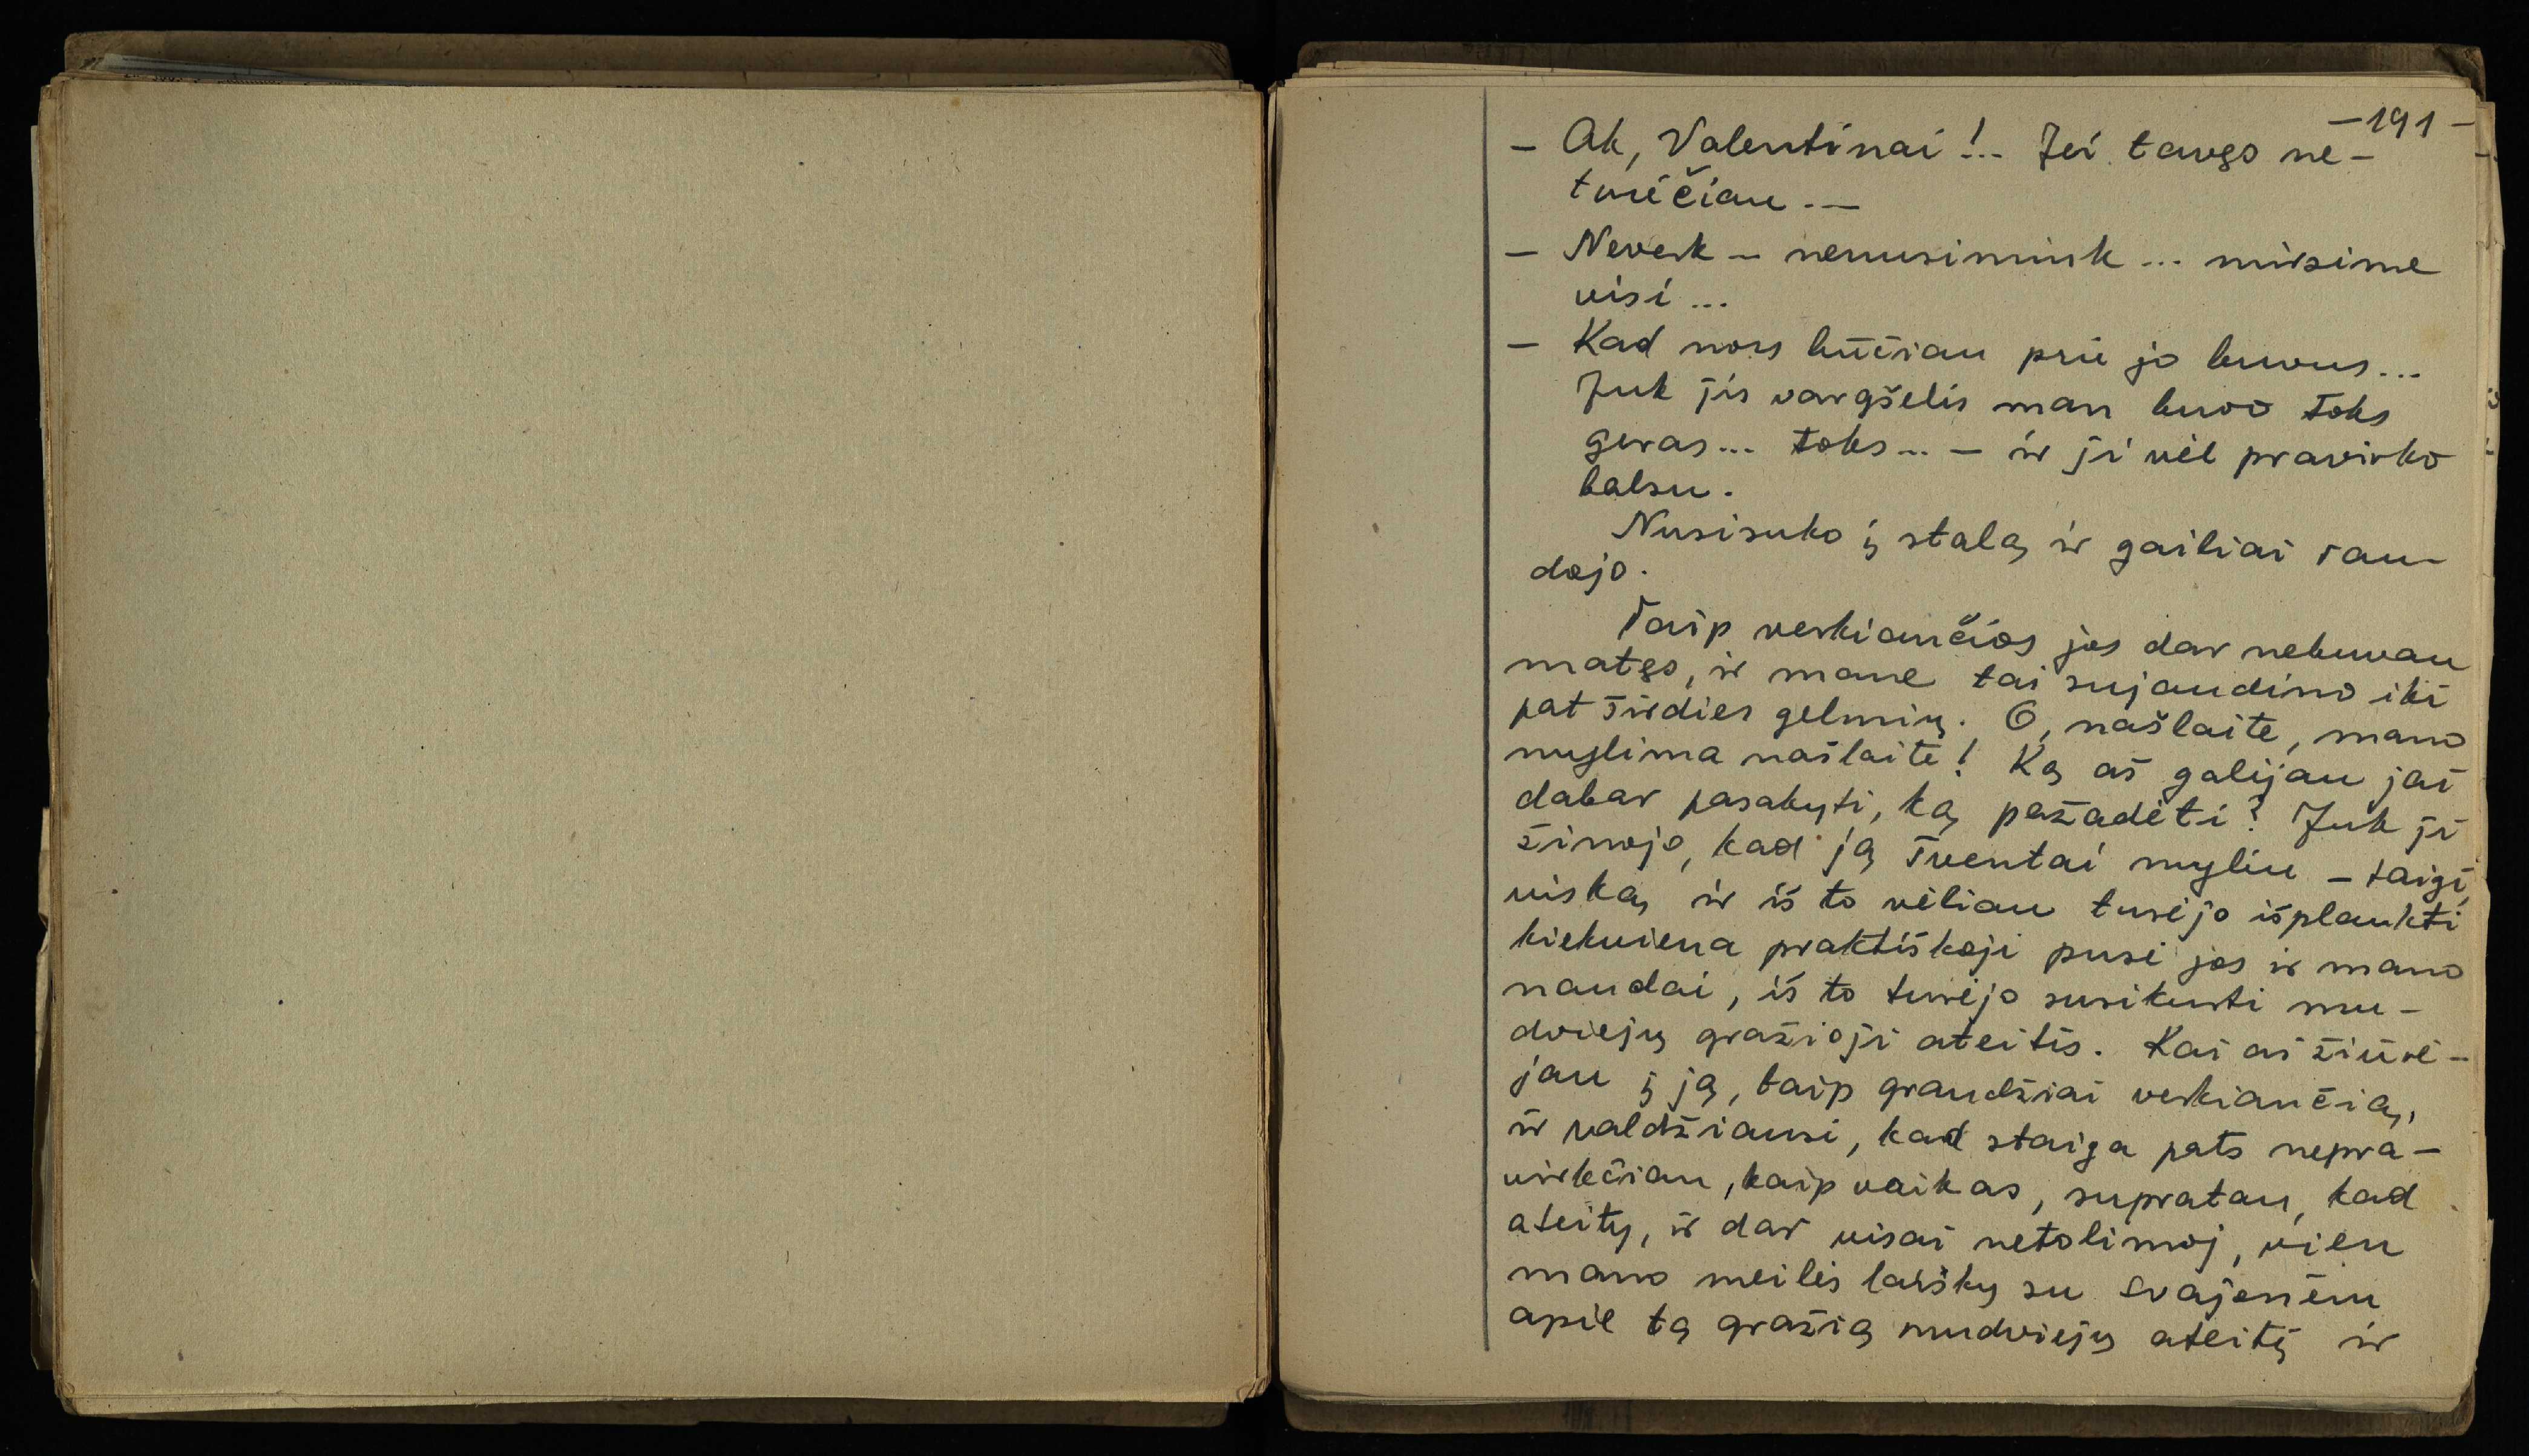 —191—
— Ak, Valentinai!... Jei tavęs ne-
turėčiau...—
— Neverk — nenusimink... mirsime
visi...
— Kad nors būčiau prie jo buvus...
Juk jis vargšelis man buvo toks
geras... toks... — ir ji vėl pravirko
balsu.
Nusisuko į stalą ir gailiai rau-
dojo.
Taip verkiančios jos dar nebuvau
matęs, ir mane tai sujaudino iki
pat širdies gelmių. O, našlaite, mano
mylima našlaite! Ką aš galėjau jai
dabar pasakyti, ką pažadėti? Juk ji
žinojo, kad ją šventai myliu — taigi,
viską, ir iš to vėliau turėjo išplaukti
kiekviena praktiškoji pusė jos ir mano
naudai, iš to turėjo susikurti mu-
dviejų gražioji ateitis. Kai aš žiūrė-
jau į ją, taip graudžiai verkiančią,
ir valdžiausi, kad staiga pats nepra-
virkčiau, kaip vaikas, supratau, kad
ateity, ir dar visai netolimoj, vien
mano meilės laiškų su svajonėm
apie tą gražią mudviejų ateitį ir